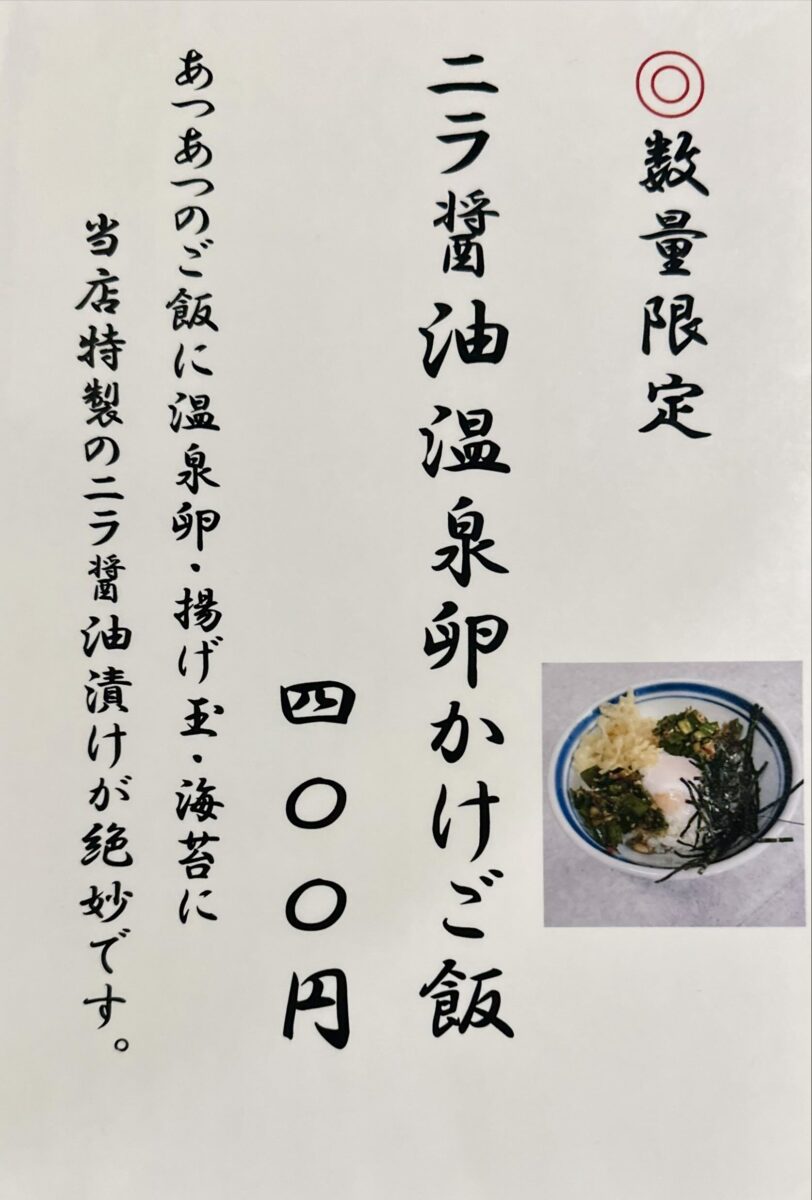 ◎数量限定
ニラ醤油温泉卵かけご飯
四〇〇円
あつあつのご飯に温泉卵・揚げ玉・海苔に
当店特製のニラ醤油漬けが絶妙です。